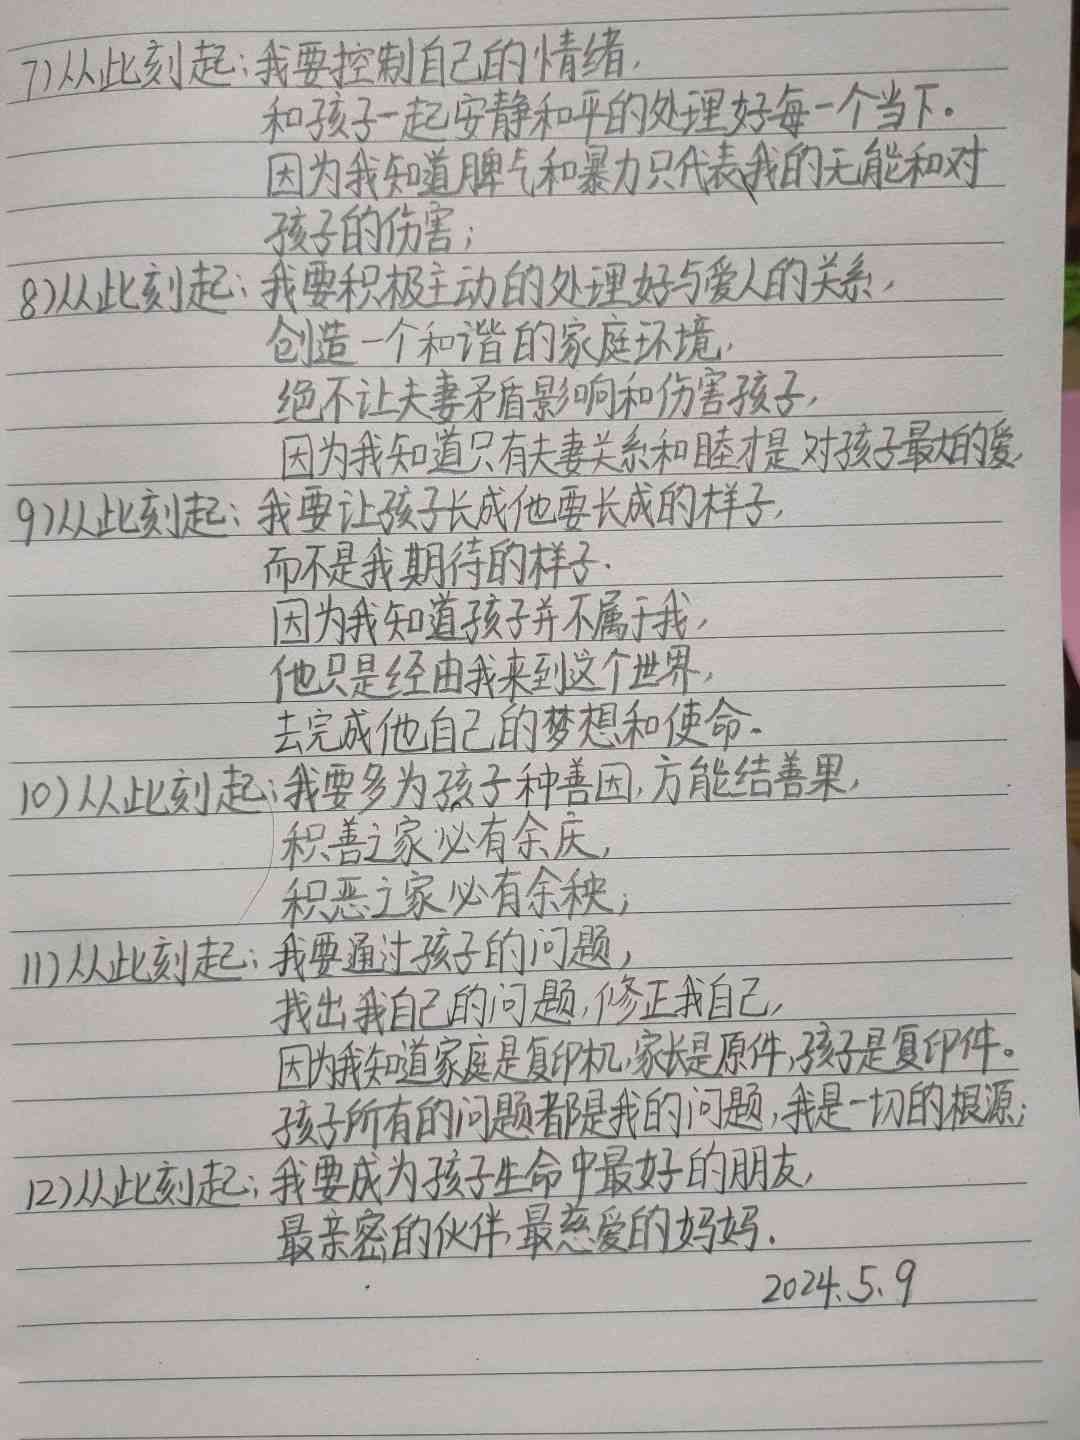 7)从此刻起:我要控制自己的情绪,
和孩子一起安静和平的处理好每一个当下。
因为我知道脾气和暴力只代表我的无能和对
孩子的伤害;
8)从此刻起:我要积极主动的处理好与爱人的关系,
创造一个和谐的家庭环境,
绝不让夫妻矛盾影响和伤害孩子,
因为我知道只有夫妻关系和睦才是对孩子最大的爱,
9)从此刻起:我要让孩子长成他要长成的样子,
而不是我期待的样子.
因为我知道孩子并不属于我,
他只是经由我来到这个世界,
去完成他自己的梦想和使命。
10)从此刻起:我要多为孩子种善因,方能结善果,
积善之家必有余庆,
积恶之家必有余秧;
11)从此刻起:我要通过孩子的问题,
找出我自己的问题,修正我自己,
因为我知道家庭是复印机,家长是原件,孩子是复印件。
孩子所有的问题都是我的问题,我是一切的根源;
12)从此刻起:我要成为孩子生命中最好的朋友,
最亲密的伙伴,最慈爱的妈妈.
2024.5.9